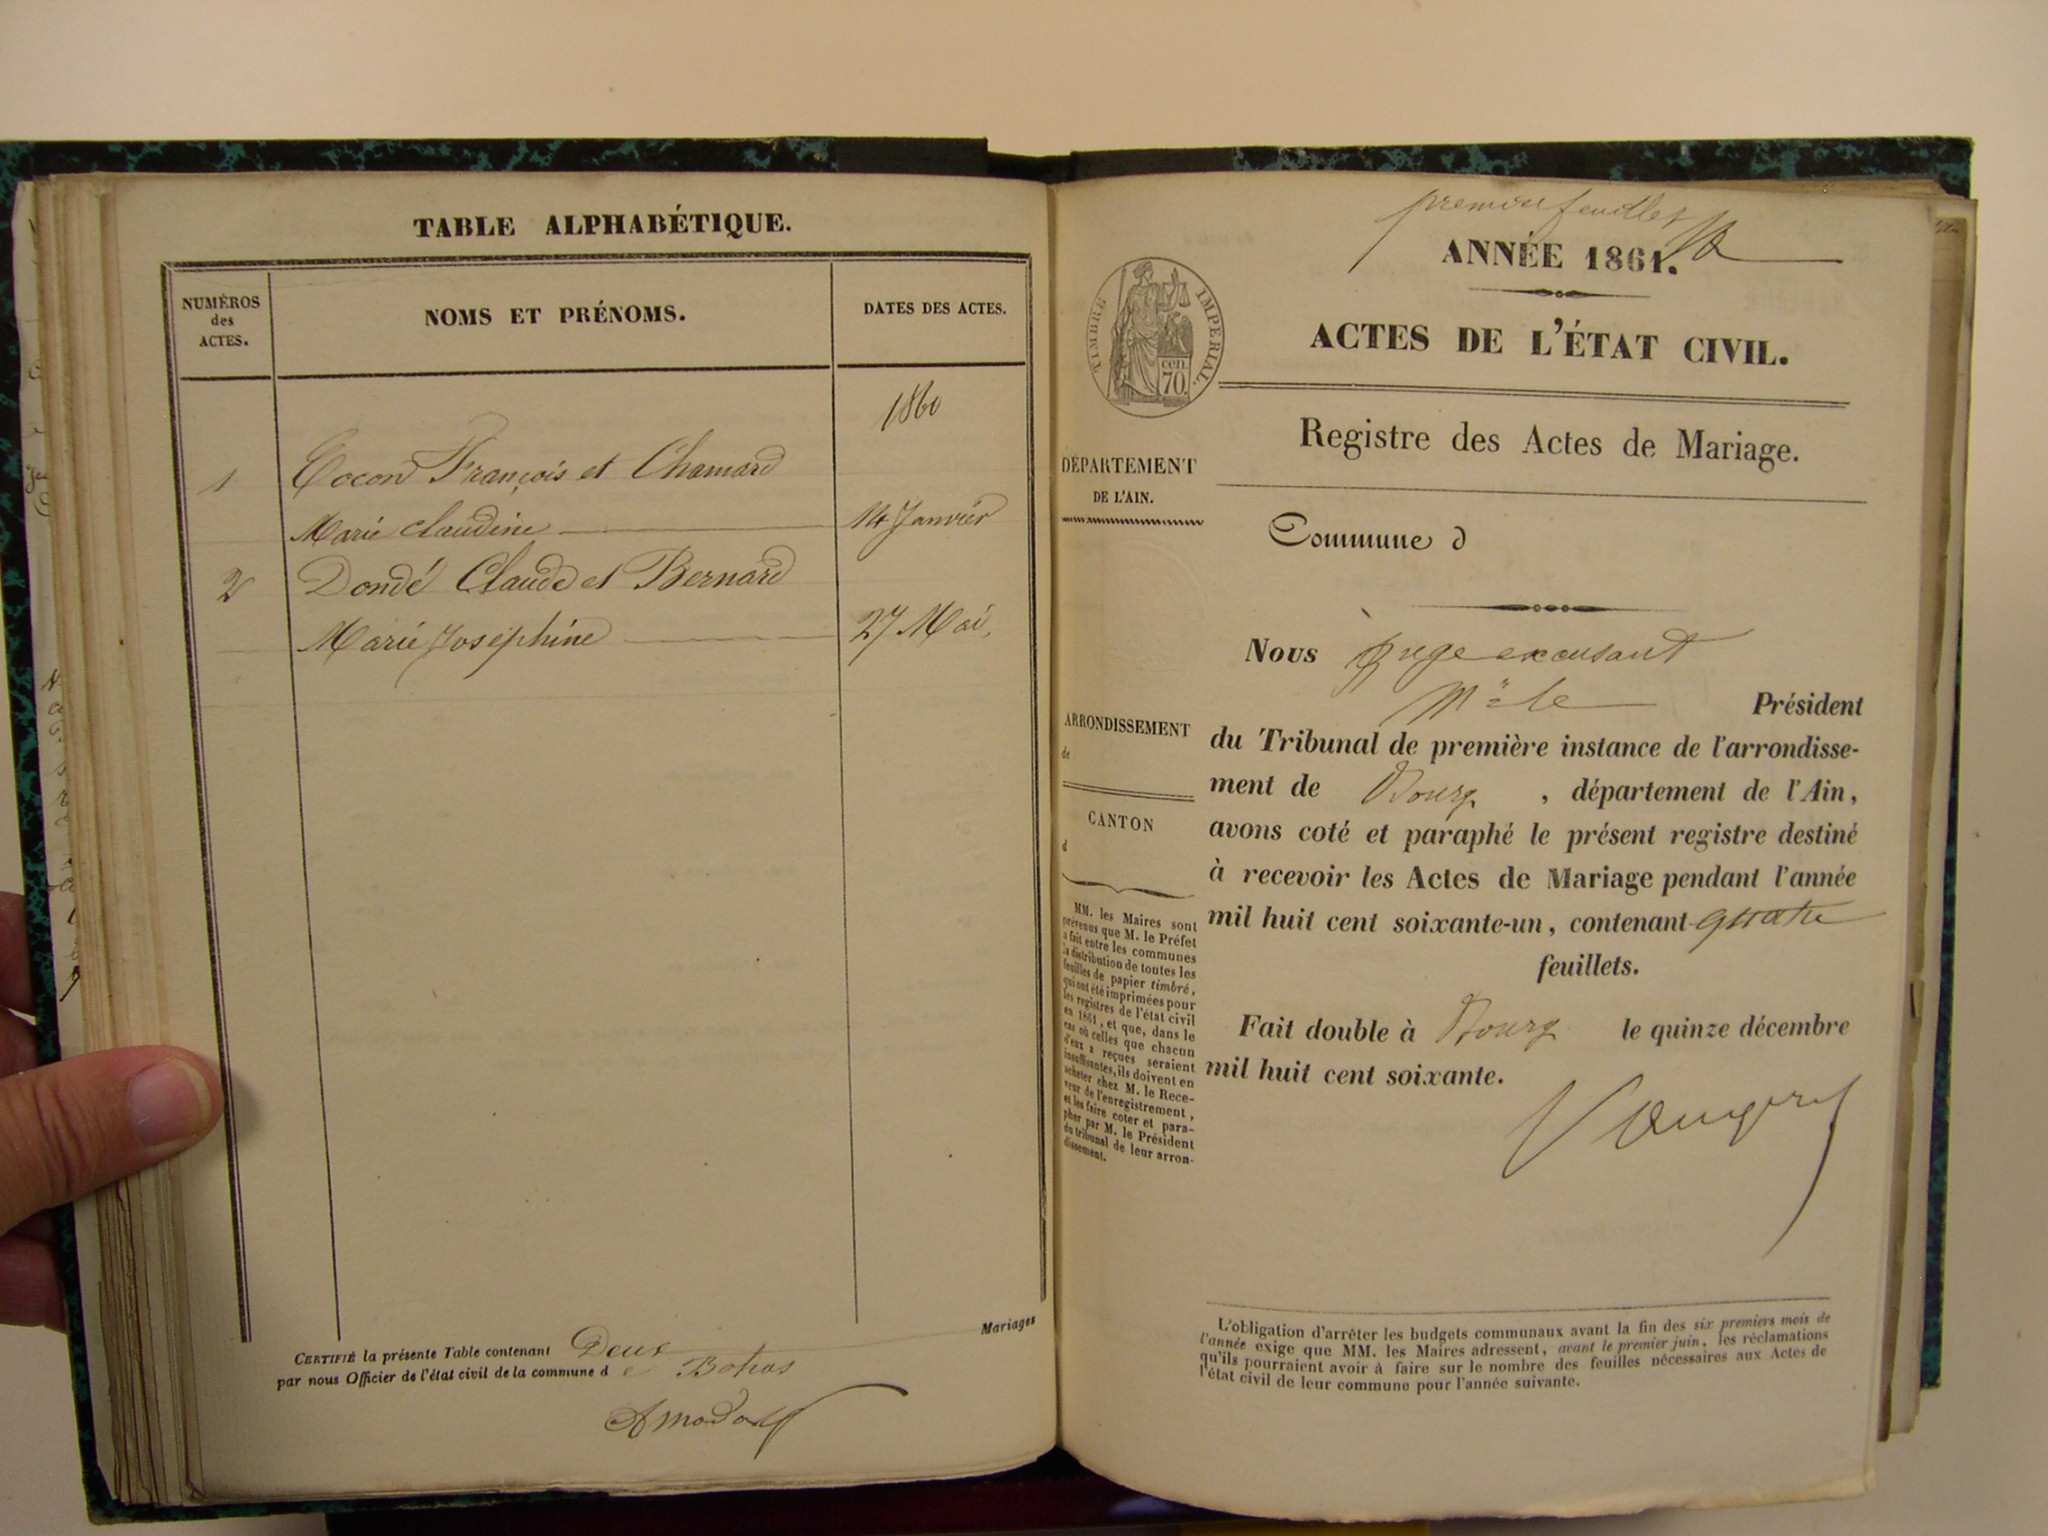 TABLE ALPHABÉTIQUE.
NUMÉROS
des
ACTES.
NOMS ET PRÉNOMS.
DATES DES ACTES.
1860
1 Cocon François et Chamard
Marie Claudine 14 Janvier
2 Dondé Claude et Bernard
Marie Joséphine 27 Mai
Mariages
CERTIFIÉ la présente Table contenant Deux
par nous Officier de l'état civil de la commune d e Bohas
premier feuillet
ANNÉE 1861.
ACTES DE L'ÉTAT CIVIL.
TIMBRE IMPERIAL.
cen.
70.
Registre des Actes de Mariage.
DÉPARTEMENT
DE L'AIN.
Commune d
Nous juge excusant
Mr le Président
ARRONDISSEMENT
de
CANTON
d
du Tribunal de première instance de l'arrondisse-
ment de Bourg , département de l'Ain,
avons coté et paraphé le présent registre destiné
à recevoir les Actes de Mariage pendant l'année
mil huit cent soixante-un, contenant quatre
feuillets.
Fait double à Bourg le quinze décembre
mil huit cent soixante.
MM. les Maires sont
prévenus que M. le Préfet
a fait entre les communes
la distribution de toutes les
feuilles de papier timbré,
qui ont été imprimées pour
les registres de l'état civil
en 1861, et que, dans le
cas où celles que chacun
d'eux a reçues seraient
insuffisantes, ils doivent en
acheter chez M. le Rece-
veur de l'enregistrement,
et les faire coter et para-
pher par M. le Président
du tribunal de leur arron-
dissement.
L'obligation d'arrêter les budgets communaux avant la fin des six premiers mois de
l'année exige que MM. les Maires adressent, avant le premier juin, les réclamations
qu'ils pourraient avoir à faire sur le nombre des feuilles nécessaires aux Actes de
l'état civil de leur commune pour l'année suivante.